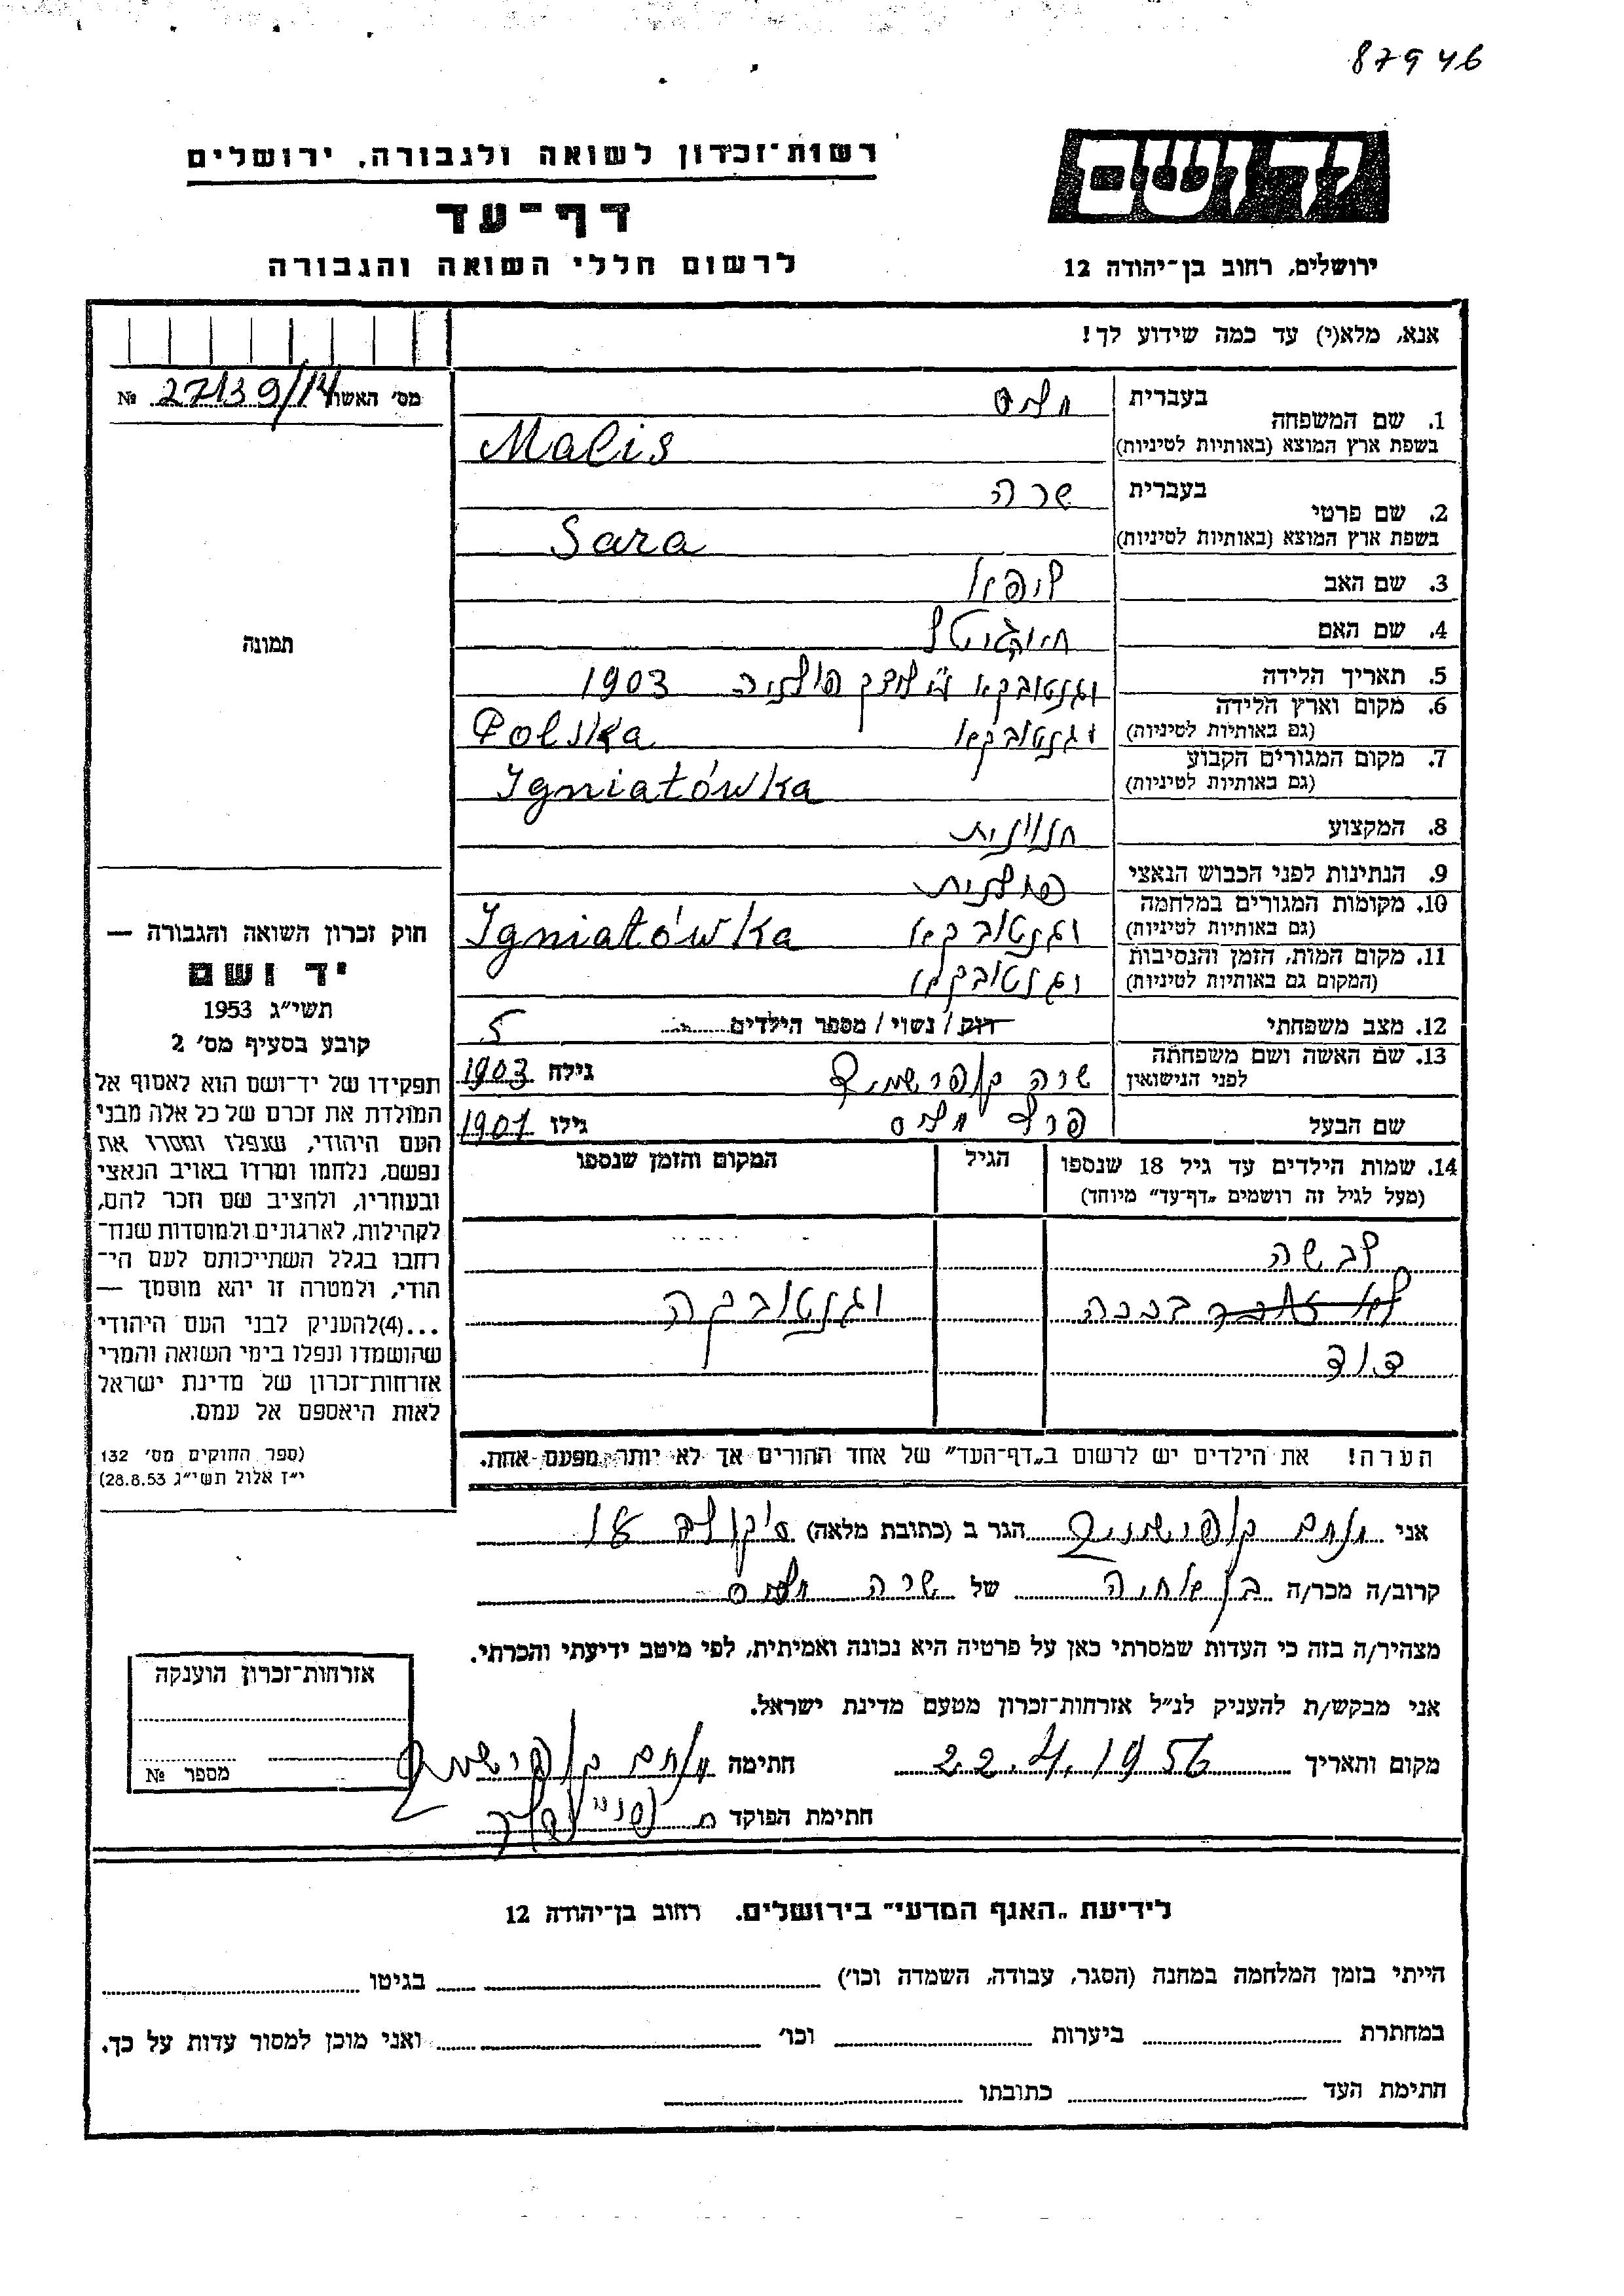 87946
רשות־זכרון לשואה ולגבורה, ירושלים
דף־עד
לרשום חללי השואה והגבורה
ידושם
ירושלים, רחוב בן־יהודה 12
אנא, מלא(י) עד כמה שידוע לך!
מס' האשה 27139/14 №
תמונה
1. שם המשפחה בעברית מלס
בשפת ארץ המוצא (באותיות לטיניות) Malis
2. שם פרטי בעברית שרה
בשפת ארץ המוצא (באותיות לטיניות) Sara
3. שם האב
4. שם האם
5. תאריך הלידה 1903
6. מקום וארץ הלידה
(גם באותיות לטיניות) Polska
7. מקום המגורים הקבוע
(גם באותיות לטיניות) Igniatówka
8. המקצוע חנונית
9. הנתינות לפני הכבוש הנאצי פולנית
10. מקומות המגורים במלחמה
(גם באותיות לטיניות) Igniatówka
11. מקום המות, הזמן והנסיבות
(המקום גם באותיות לטיניות)
12. מצב משפחתי רווק / נשוי / מספר הילדים 5
13. שם האשה ושם משפחתה
לפני הנישואין שרה קופרשמיד גילה 1903
שם הבעל מלס גילו 1901
14. שמות הילדים עד גיל 18 שנספו הגיל המקום והזמן שנספו
(מעל לגיל זה רושמים „דף־עד” מיוחד)
דוד
הערה! את הילדים יש לרשום ב„דף־העד” של אחד ההורים אך לא יותר מפעם אחת.
חוק זכרון השואה והגבורה —
יד ושם
תשי״ג 1953
קובע בסעיף מס' 2
תפקידו של יד־ושם הוא לאסוף אל
המולדת את זכרם של כל אלה מבני
העם היהודי, שנפלו ומסרו את
נפשם, נלחמו ומרדו באויב הנאצי
ובעוזריו, ולהציב שם וזכר להם,
לקהילות, לארגונים ולמוסדות שנח־
רחבו בגלל השתייכותם לעם הי־
הודי, ולמטרה זו יהא מוסמך —
...(4)להעניק לבני העם היהודי
שהושמדו ונפלו בימי השואה והמרי
אזרחות־זכרון של מדינת ישראל
לאות היאספם אל עמם.
(ספר החוקים מס' 132
י״ז אלול תשי״ג 28.8.53)
אני מנחם קופרשמיד הגר ב (כתובת מלאה)
קרוב/ה מכר/ה בן אחיה של שרה מלס
מצהיר/ה בזה כי העדות שמסרתי כאן על פרטיה היא נכונה ואמיתית, לפי מיטב ידיעתי והכרתי.
אני מבקש/ת להעניק לנ״ל אזרחות־זכרון מטעם מדינת ישראל.
מקום ותאריך 22.4.1956 חתימה מנחם קופרשמיד
חתימת הפוקד
אזרחות־זכרון הוענקה
מספר №
לידיעת „האגף המדעי” בירושלים. רחוב בן־יהודה 12
הייתי בזמן המלחמה במחנה (הסגר, עבודה, השמדה וכו') בגיטו
במחתרת ביערות וכו' ואני מוכן למסור עדות על כך.
חתימת העד כתובתו